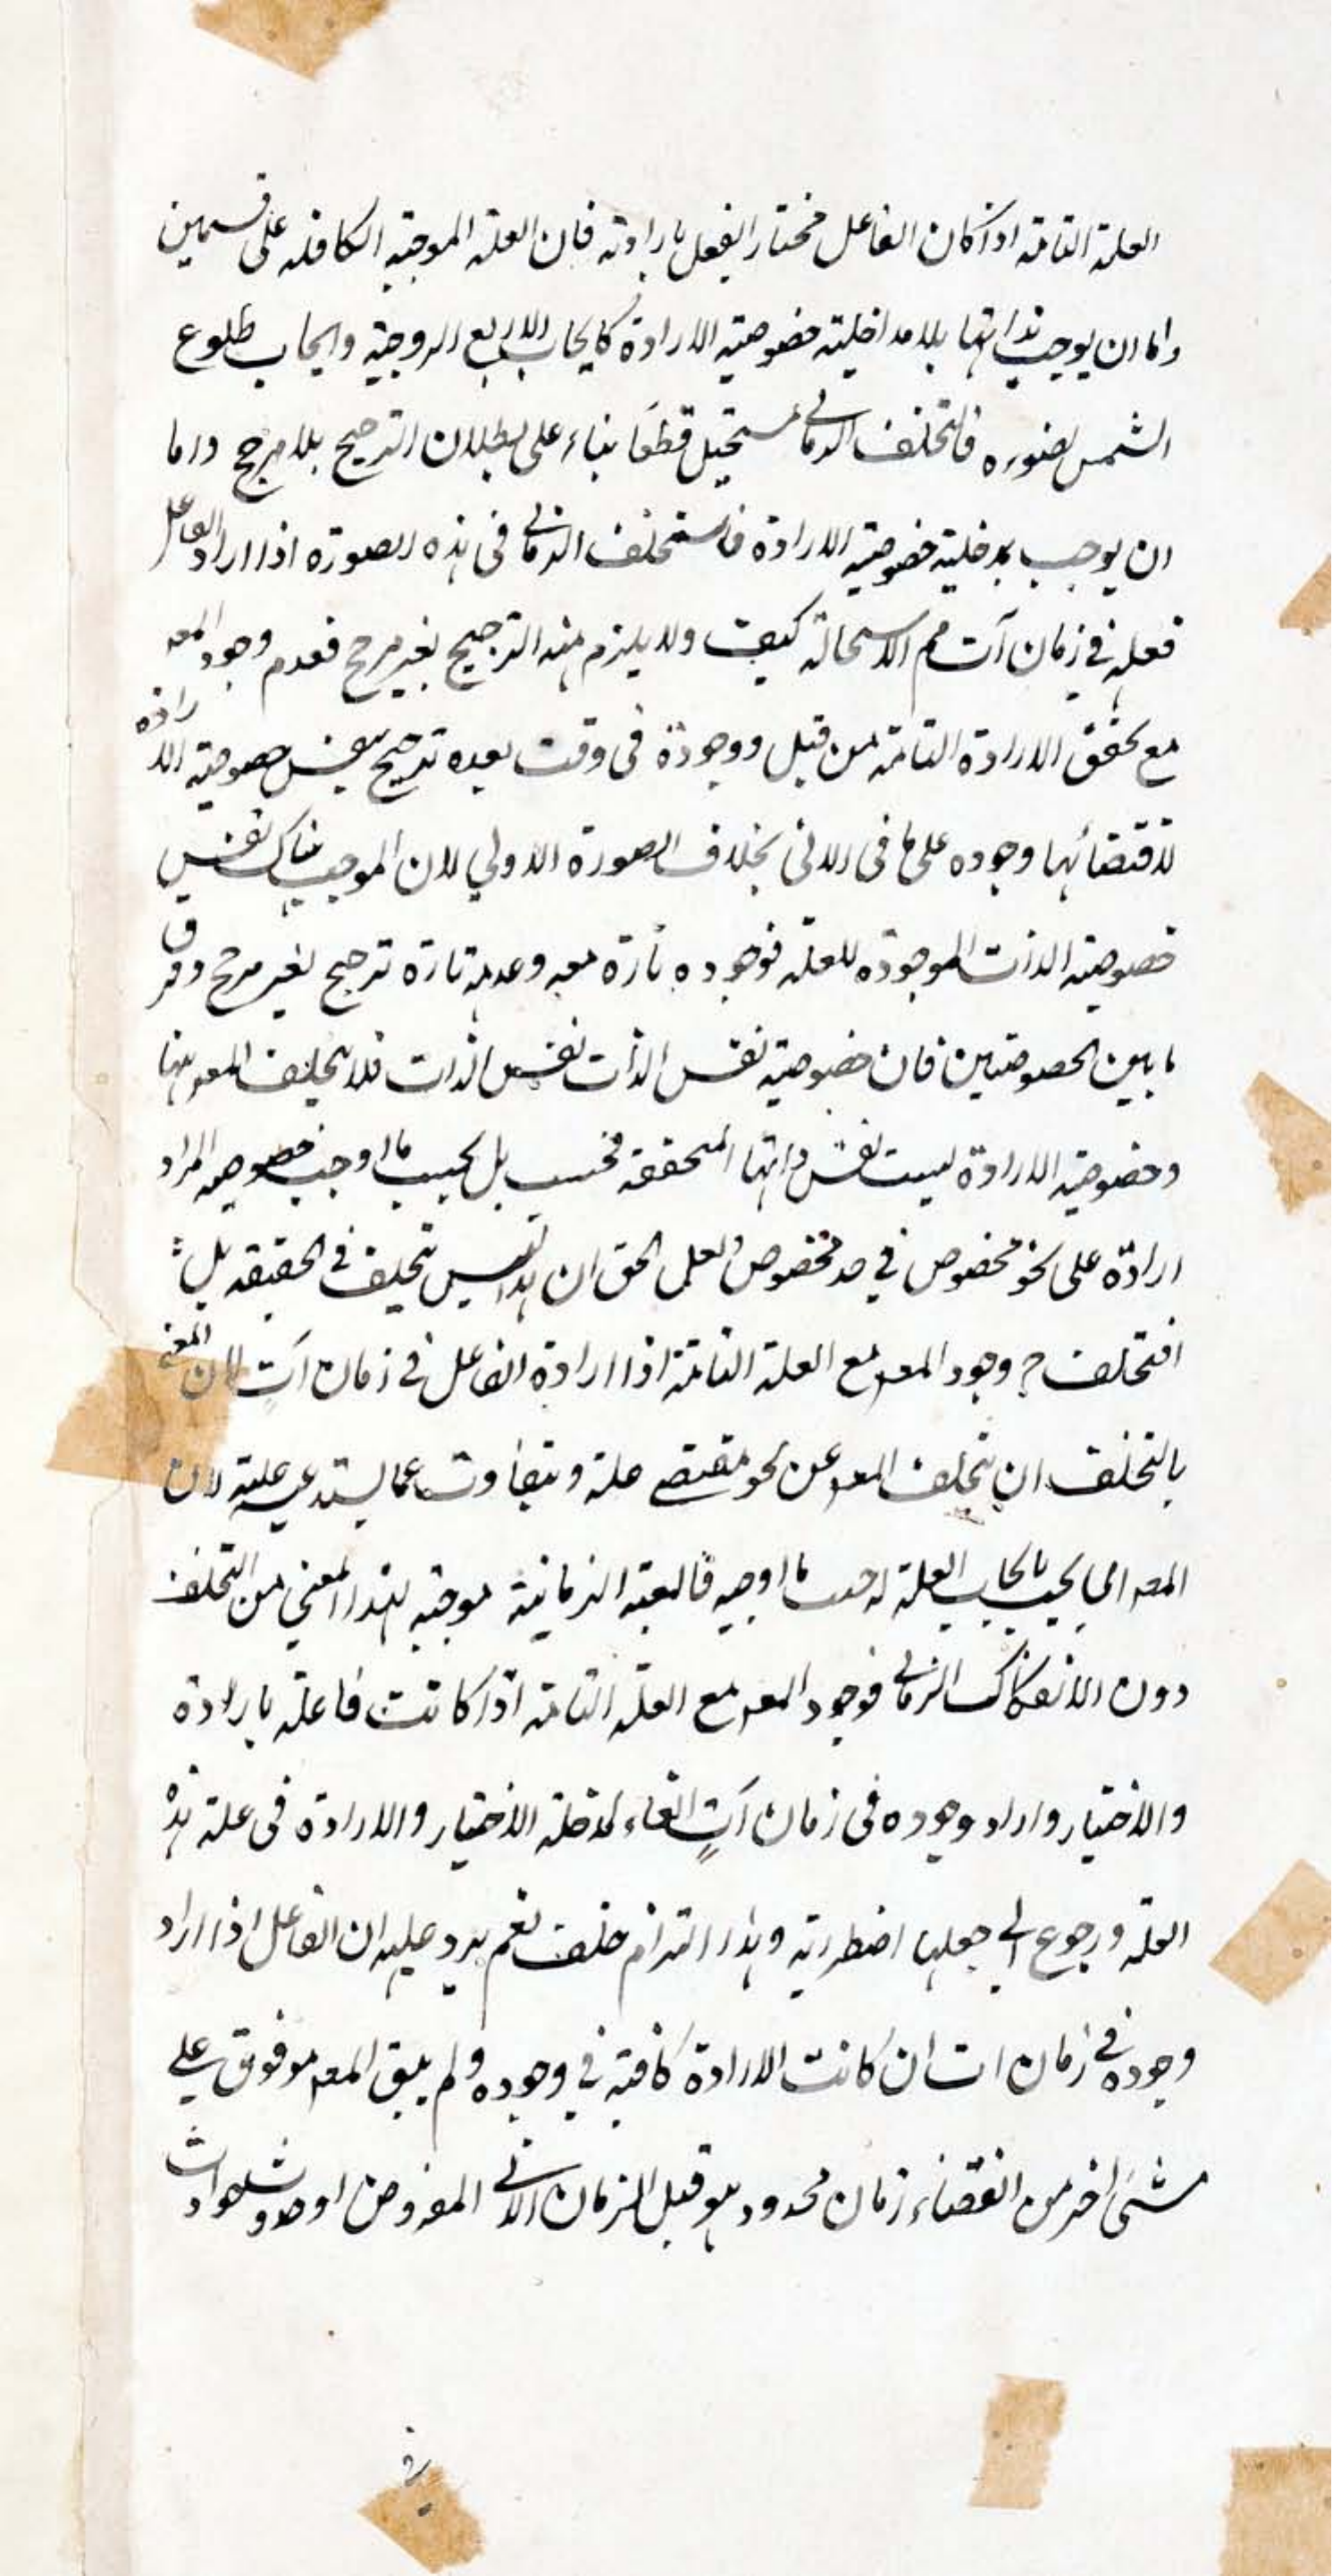 العلة التامة اذا كان الفاعل مختارا يفعل بارادته فان العلة الموجبة الكافله على قسمين
واما ان يوجب بذاتها بلا مداخلية خصوصية الارادة كايجاب الاربع الزوجية وايجاب طلوع
الشمس لضوره فالتخلف الزماني مستحيل قطعا بناء على بطلان الترجيح بلا مرجح واما
ان يوجب بمدخلية خصوصية الارادة التخلف الزماني في هذه الصورة اذا اراد الفاعل
فعله في زمان آت مم الاستحالة كيف ولا يلزم منه الترجيح بغير مرجح فعدم وجود المعه
مع تحقق الارادة التامة من قبل ووجوده في وقت بعده ترجيح بنفس خصوصية الارادة
لاقتضائها وجوده على ما في الاتى بخلاف الصورة الاولي لان الموجب هناك نفس
خصوصية الذات الموجودة للعلة فوجوده تارة معه وعدمه تارة ترجيح بغير مرجح وفرق
ما بين الخصوصتين فان خصوصية نفس الذات نفس الذات فلا تخلف المعه منها
وخصوصية الارادة ليست نفس ذاتها المتحققة فحسب بل بحسب ما اوجب خصوصية المراد
ارادة على نحو مخصوص في حد مخصوص ولعل الحق ان هذا ليس تخلف في الحقيقة بل
التخلف ح وجود المعه مع العلة التامة اذا ارادة الفاعل في زمان آت لان المعنى
بالتخلف ان تخلف المعه عن نحو مقتضى علة وتتفاوت عما يستدعيه علية لان
المعه يجب بايجاب العلة له ما اوجبه فالمعية الزمانية موجبة لهذا المعني من التخلف
دون الانفكاك الزماني فوجود المعه مع العلة التامة اذا كانت فاعلة بارادة
والاختيار واراد وجوده في زمان آت الغاء لمدخلة الاختيار والارادة في علة هذه
العلة ورجوع الي جعلها اضطرارية وهذا التزام خلف نعم يرد عليه ان الفاعل اذا اراد
وجوده في زمان ات ان كانت الارادة كافية في وجوده ولم يبق المعه موقوف على
شئ اخر من انقضاء زمان محدود هو قبل الزمان الاتي المفروض او حدوث حوادث